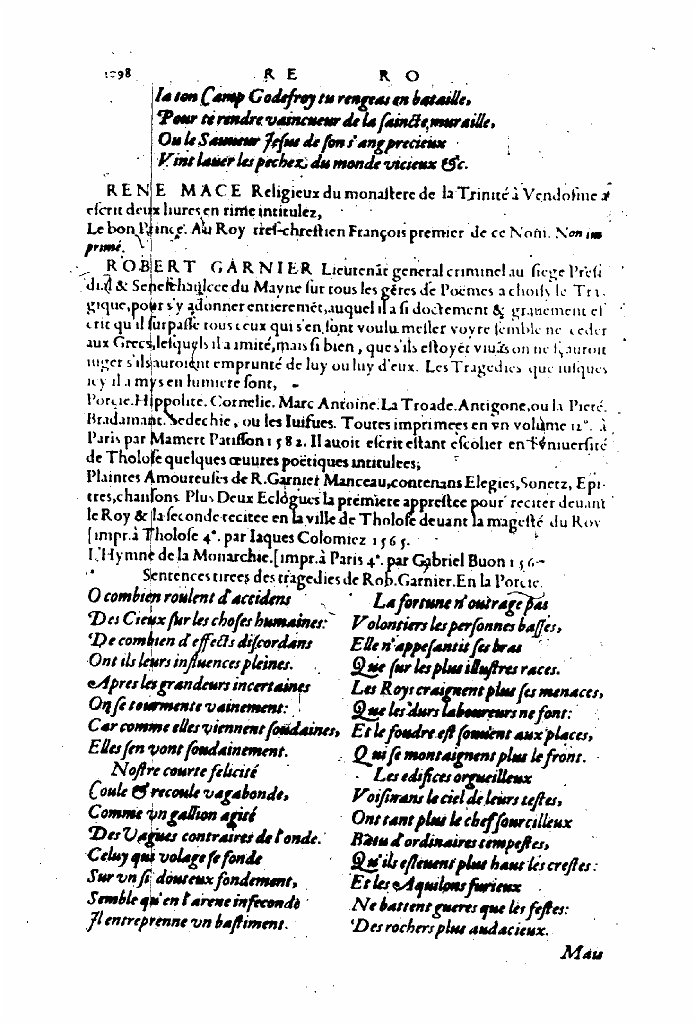 1098 R E R O
Ia ton Camp Godefroy tu rengeas en bataille,
Pour te rendre vaincueur de la saincte muraille,
Ou le Sauueur Jesus de son s'ang precieux
Vint lauer les pechez du monde vicieux &c.
RENE MACE Religieux du monastere de la Trinité à Vendosme a
escrit deux liures en rime intitulez,
Le bon Prince. Au Roy tres-chrestien François premier de ce Nom. Non im
primé.
ROBERT GARNIER Lieutenāt general criminel au siege Presi
dial & Seneschaulcee du Mayne sur tous les gēres de Poëmes a choisy le Tra
gique, pour s'y adonner entieremēt, auquel il a si doctement & grauement es
crit qu'il surpasse tous ceux qui s'en sont voulu mesler voyre semble ne ceder
aux Grecs, lesquels il a imité, mais si bien, que s'ils estoyēt viuās on ne sçauroit
iuger s'ils auroient emprunté de luy ou luy d'eux. Les Tragedies que iusques
icy il a mys en lumiere sont,
Porcie. Hippolite. Cornelie. Marc Antoine. La Troade. Antigone, ou la Pieté.
Bradamant. Sedechie, ou les Iuifues. Toutes imprimees en vn volume 12°. à
Paris par Mamert Patisson 1582. Il auoit escrit estant escholier en l'éniuersité
de Tholose quelques œuures poëtiques intitulees;
Plaintes Amoureuses de R. Garnier Manceau, contenans Elegies, Sonetz, Epi
tres, chansons. Plus Deux Eclogues la premiere apprestee pour reciter deuant
le Roy & la seconde recitee en la ville de Tholose deuant la magesté du Roy
[impr. à Tholose 4°. par Iaques Colomiez 1565.
L'Hymne de la Monarchie. [impr. à Paris 4°. par Gabriel Buon 156
Sentences tirees des tragedies de Rob. Garnier. En la Porcie.
O combien roulent d'accidens
Des Cieux sur les choses humaines:
De combien d'effects discordans
Ont ils leurs influences pleines.
Apres les grandeurs incertaines
On se tourmente vainement:
Car comme elles viennent soudaines,
Elles s'en vont soudainement.
Nostre courte felicité
Coule & recoule vagabonde,
Comme vn gallion agité
Des Vagues contraires de l'onde.
Celuy qui volage se fonde
Sur vn si douteux fondement,
Semble qu'en l'arene infeconde
Il entreprenne vn bastiment.
La fortune n'outrage pas
Volontiers les personnes basses,
Elle n'appesantit ses bras
Que sur les plus illustres races.
Les Roys craignent plus ses menaces,
Que les durs laboureurs ne font:
Et le foudre est souuent aux places,
Qui se montaignent plus le front.
Les edifices orgueilleux
Voisinans le ciel de leurs testes,
Ont tant plus le chef sourcilleux
Batu d'ordinaires tempestes,
Qu'ils esleuent plus haut les crestes:
Et les Aquilons furieux
Ne battent gueres que les festes:
Des rochers plus audacieux.
Mau